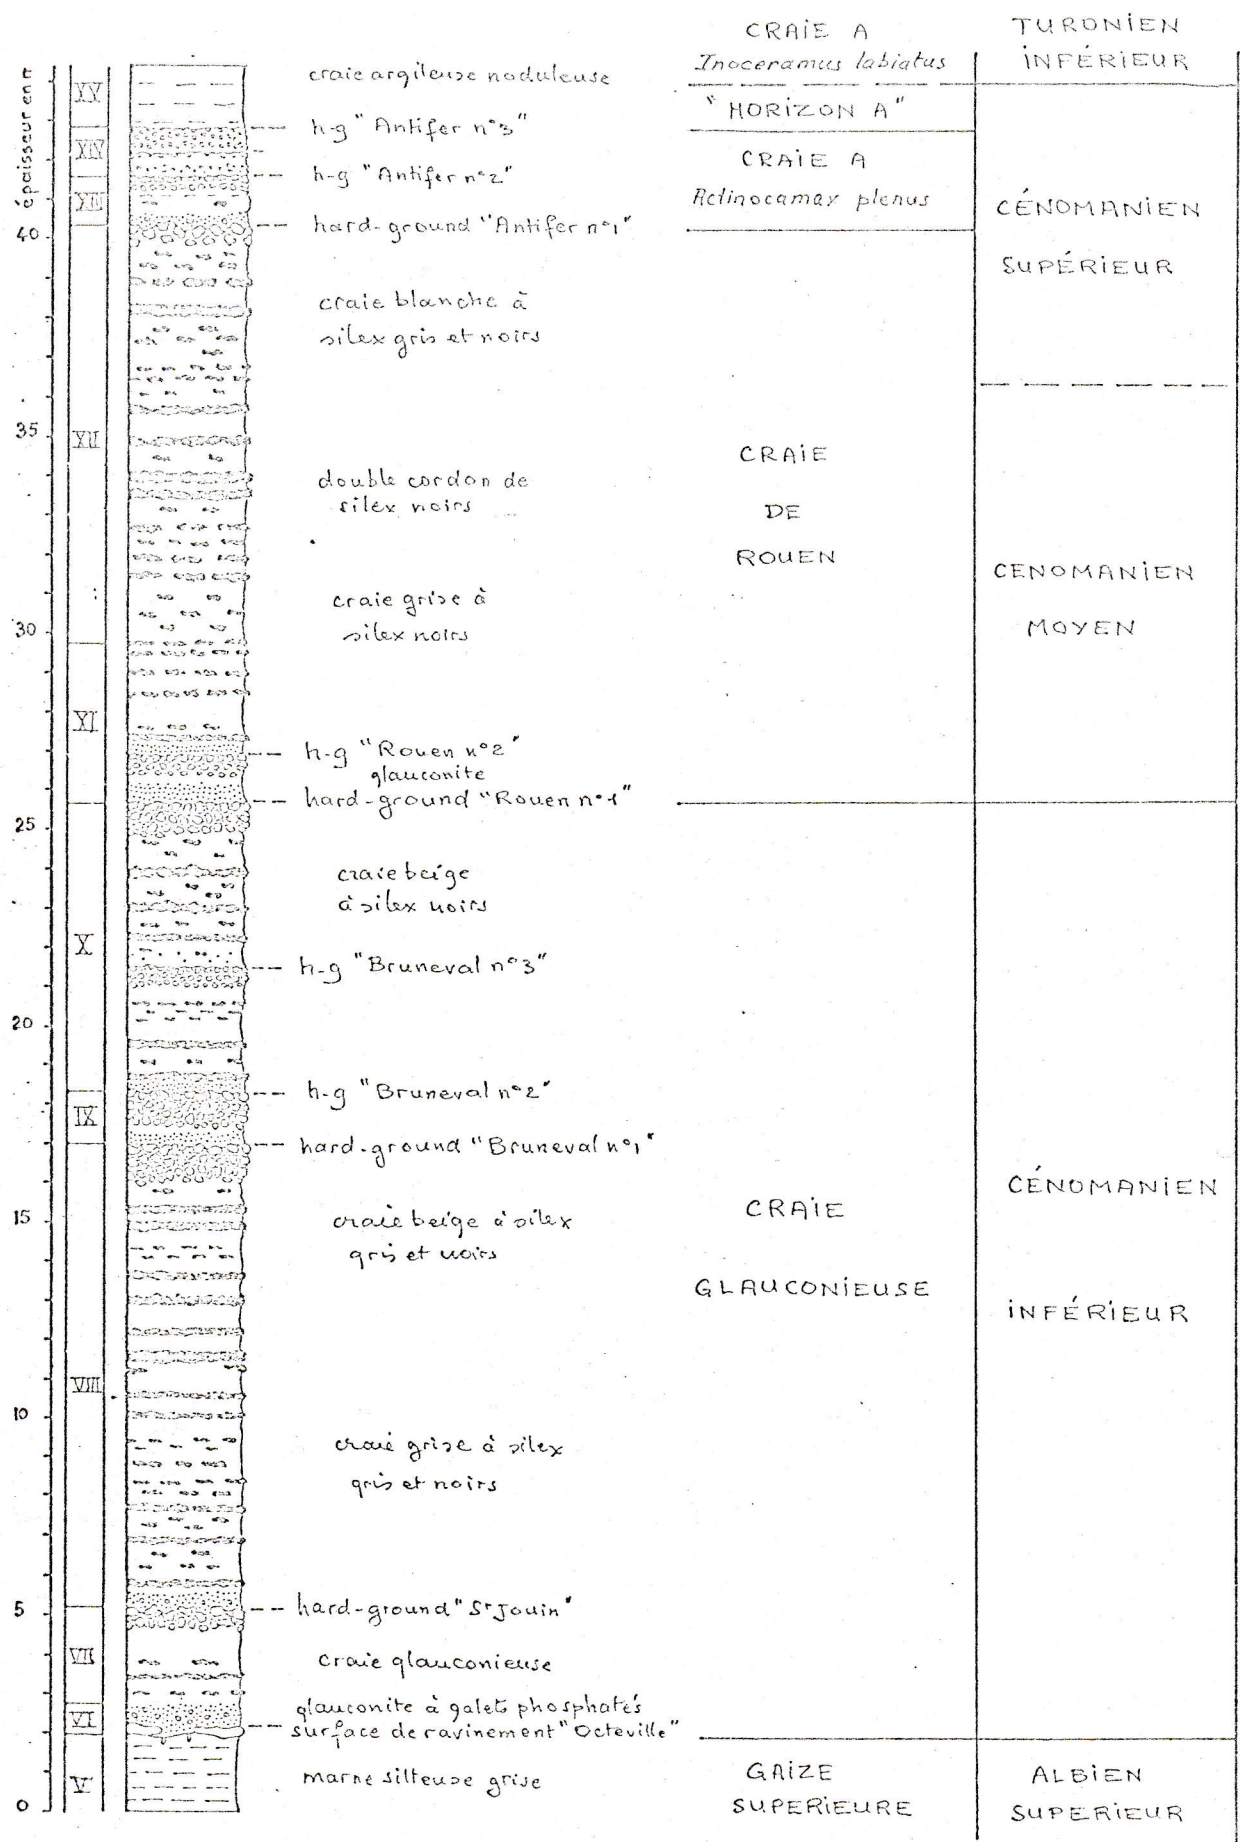 épaisseur en m
40
35
30
25
20
15
10
5
0
XV
XIV
XIII
XII
XI
X
IX
VIII
VII
VI
V
craie argileuse noduleuse
h-g "Antifer n°3"
h-g "Antifer n°2"
hard-ground "Antifer n°1"
craie blanche à
silex gris et noirs
double cordon de
silex noirs
craie grise à
silex noirs
h-g "Rouen n°2"
glauconite
hard-ground "Rouen n°1"
craie beige
à silex noirs
h-g "Bruneval n°3"
h-g "Bruneval n°2"
hard-ground "Bruneval n°1"
craie beige à silex
gris et noirs
craie grise à silex
gris et noirs
hard-ground "St Jouin"
craie glauconieuse
glauconite à galets phosphatés
surface de ravinement "Octeville"
marne silteuse grise
CRAIE A
Inoceramus labiatus
"HORIZON A"
CRAIE A
Actinocamax plenus
CRAIE
DE
ROUEN
CRAIE
GLAUCONIEUSE
GAIZE
SUPERIEURE
TURONIEN
INFÉRIEUR
CÉNOMANIEN
SUPÉRIEUR
CENOMANIEN
MOYEN
CÉNOMANIEN
INFÉRIEUR
ALBIEN
SUPERIEUR